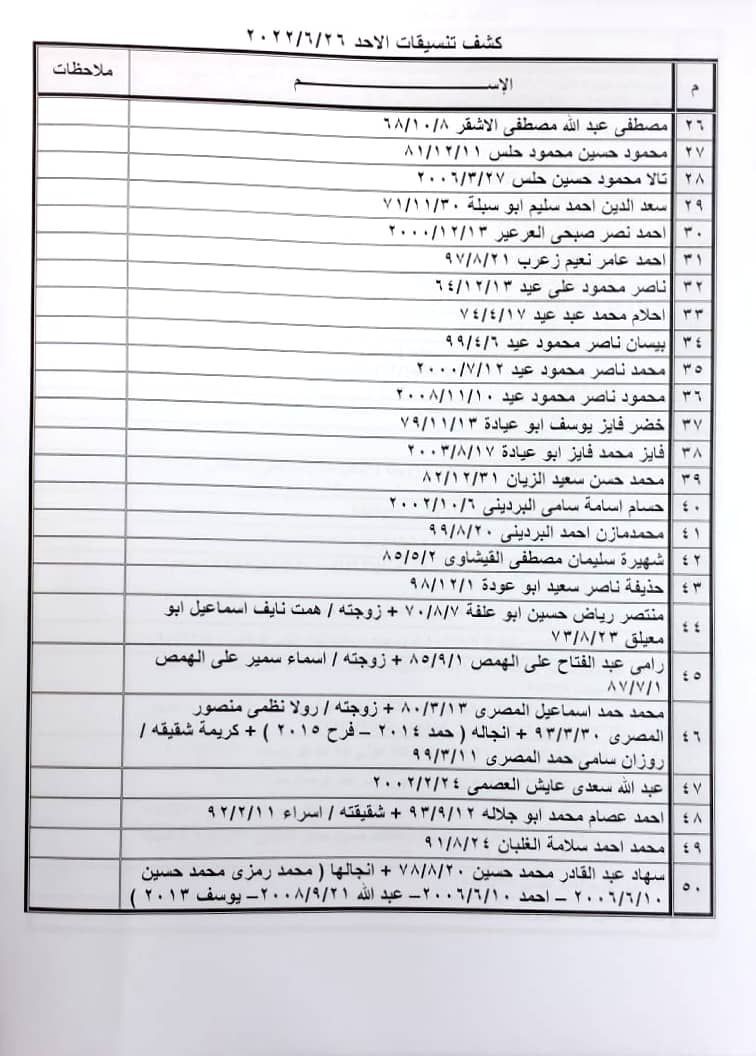 كشف تنسيقات الاحد ٢٠٢٢/٦/٢٦
م الإســــــم ملاحظات
٢٦ مصطفى عبد الله مصطفى الاشقر ٦٨/١٠/٨
٢٧ محمود حسين محمود حلس ٨١/١٢/١١
٢٨ تالا محمود حسين حلس ٢٠٠٦/٣/٢٧
٢٩ سعد الدين احمد سليم ابو سبلة ٧١/١١/٣٠
٣٠ احمد نصر صبحى العرعير ٢٠٠٠/١٢/١٣
٣١ احمد عامر نعيم زعرب ٩٧/٨/٢١
٣٢ ناصر محمود على عيد ٦٤/١٢/١٣
٣٣ احلام محمد عبد عيد ٧٤/٤/١٧
٣٤ بيسان ناصر محمود عيد ٩٩/٤/٦
٣٥ محمد ناصر محمود عيد ٢٠٠٠/٧/١٢
٣٦ محمود ناصر محمود عيد ٢٠٠٨/١١/١٠
٣٧ خضر فايز يوسف ابو عيادة ٧٩/١١/١٣
٣٨ فايز محمد فايز ابو عيادة ٢٠٠٣/٨/١٧
٣٩ محمد حسن سعيد الزيان ٨٢/١٢/٣١
٤٠ حسام اسامة سامى البردينى ٢٠٠٢/١٠/٦
٤١ محمدمازن احمد البردينى ٩٩/٨/٢٠
٤٢ شهيرة سليمان مصطفى القيشاوى ٨٥/٥/٢
٤٣ حذيفة ناصر سعيد ابو عودة ٩٨/١٢/١
٤٤ منتصر رياض حسين ابو علفة ٧٠/٨/٧ + زوجته / همت نايف اسماعيل ابو
معيلق ٧٣/٨/٢٣
٤٥ رامى عبد الفتاح على الهمص ٨٥/٩/١ + زوجته / اسماء سمير على الهمص
٨٧/٧/١
محمد حمد اسماعيل المصرى ٨٠/٣/١٣ + زوجته / رولا نظمى منصور
٤٦ المصرى ٩٣/٣/٣٠ + انجاله ( حمد ٢٠١٤ – فرح ٢٠١٥ ) + كريمة شقيقه /
روزان سامى حمد المصرى ٩٩/٣/١١
٤٧ عبد الله سعدى عايش العصمى ٢٠٠٢/٢/٢٤
٤٨ احمد عصام محمد ابو جلاله ٩٣/٩/١٢ + شقيقته / اسراء ٩٢/٢/١١
٤٩ محمد احمد سلامة الغلبان ٩١/٨/٢٤
٥٠ سهاد عبد القادر محمد حسين ٧٨/٨/٢٠ + انجالها ( محمد رمزى محمد حسين
٢٠٠٦/٦/١٠ – احمد ٢٠٠٦/٦/١٠– عبد الله ٢٠٠٨/٩/٢١– يوسف ٢٠١٣ )